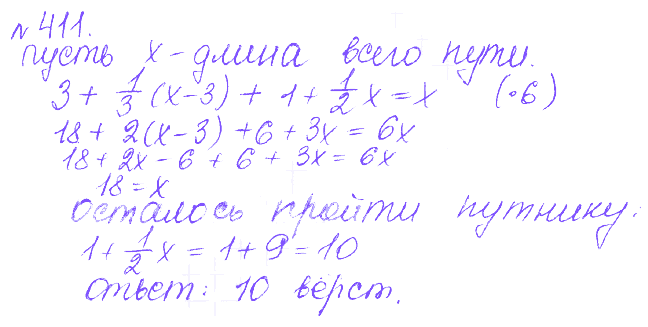 № 411.
пусть x - длина всего пути.
3 + 1/3 (x - 3) + 1 + 1/2 x = x (·6)
18 + 2(x - 3) + 6 + 3x = 6x
18 + 2x - 6 + 6 + 3x = 6x
18 = x
осталось пройти путнику:
1 + 1/2 x = 1 + 9 = 10
Ответ: 10 вёрст.